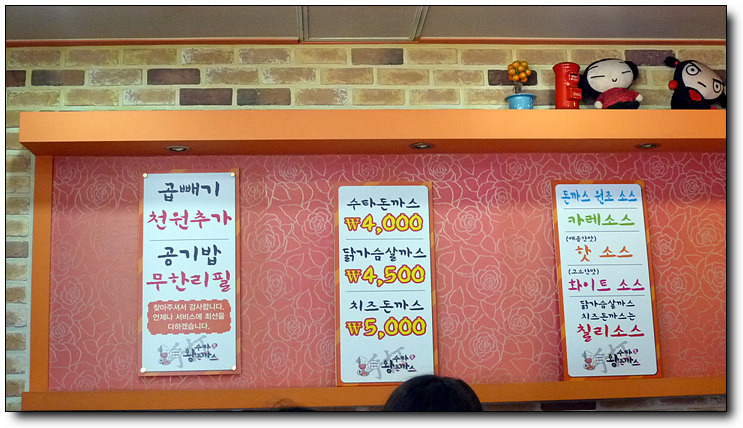 곱빼기
천원추가
공기밥
무한리필
찾아주셔서 감사합니다.
언제나 서비스에 최선을
다하겠습니다.
수타
왕돈까스
수타돈까스
₩4,000
닭가슴살까스
₩4,500
치즈돈까스
₩5,000
수타
왕돈까스
돈까스 원조 소스
카레소스
(매운맛)
핫 소스
(고소한맛)
화이트 소스
닭가슴살까스
치즈돈까스는
칠리소스
수타
왕돈까스